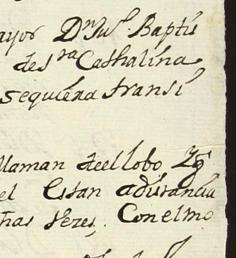 ayor Dn Ju.º Baptis
de sra Cathalina
sequiera transi
llaman de el lobo
el Estan a distancia
tras vezes, Con el mo